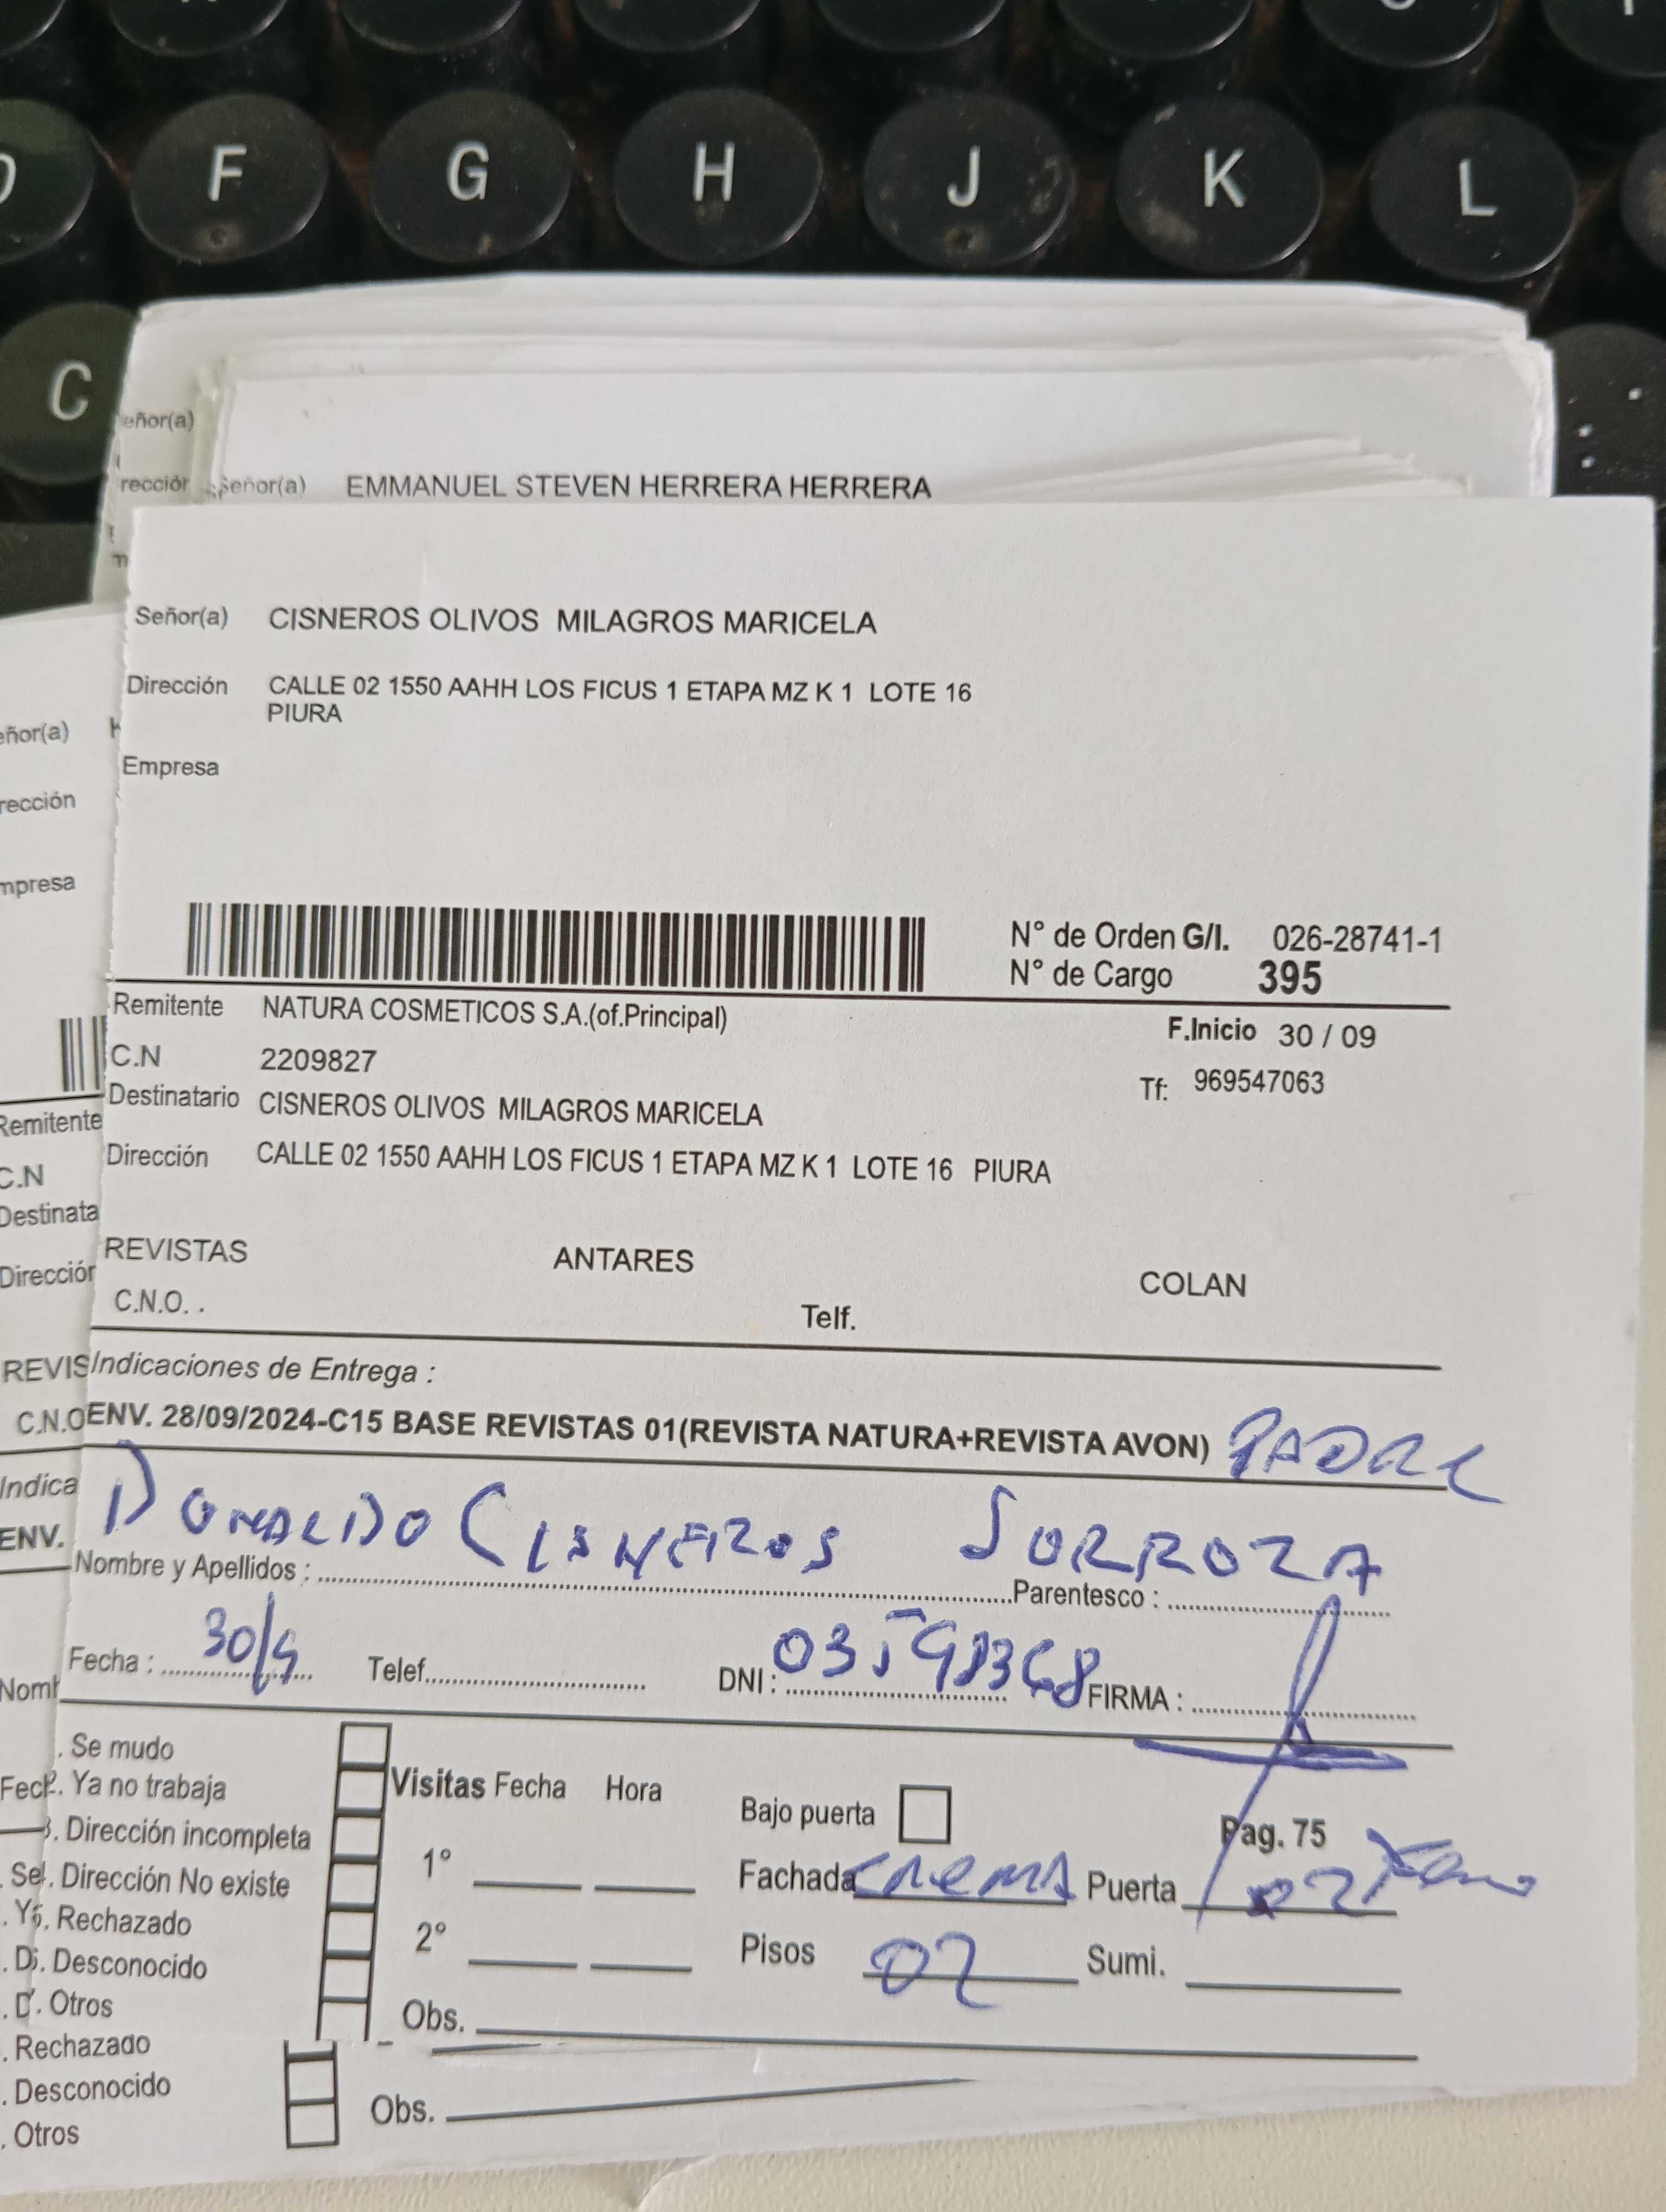 F G H J K L
C
eñor(a)
rección Señor(a) EMMANUEL STEVEN HERRERA HERRERA
Señor(a) CISNEROS OLIVOS MILAGROS MARICELA
Dirección CALLE 02 1550 AAHH LOS FICUS 1 ETAPA MZ K 1 LOTE 16
PIURA
Empresa
eñor(a)
rección
mpresa
N° de Orden G/I. 026-28741-1
N° de Cargo 395
Remitente NATURA COSMETICOS S.A.(of.Principal)
F.Inicio 30 / 09
C.N 2209827
Tf: 969547063
Destinatario CISNEROS OLIVOS MILAGROS MARICELA
Dirección CALLE 02 1550 AAHH LOS FICUS 1 ETAPA MZ K 1 LOTE 16 PIURA
Remitente
C.N
Destinata
Dirección
REVISTAS ANTARES COLAN
C.N.O. . Telf.
REVIS
Indicaciones de Entrega :
C.N.O
ENV. 28/09/2024-C15 BASE REVISTAS 01(REVISTA NATURA+REVISTA AVON) PADRE
Indica
ENV.
DONALDO CISNEROS SORROZA
Nombre y Apellidos : Parentesco :
Fecha : 30/9 Telef. DNI : FIRMA :
Nom
. Se mudo
Fech
. Ya no trabaja
Visitas Fecha Hora
Bajo puerta
Pag. 75
3. Dirección incompleta
1°
Fachada CREMA Puerta 02
. Dirección No existe
. Rechazado
2°
Pisos 02 Sumi.
. Desconocido
. Otros
Obs.
. Rechazado
. Desconocido
. Otros
Obs.